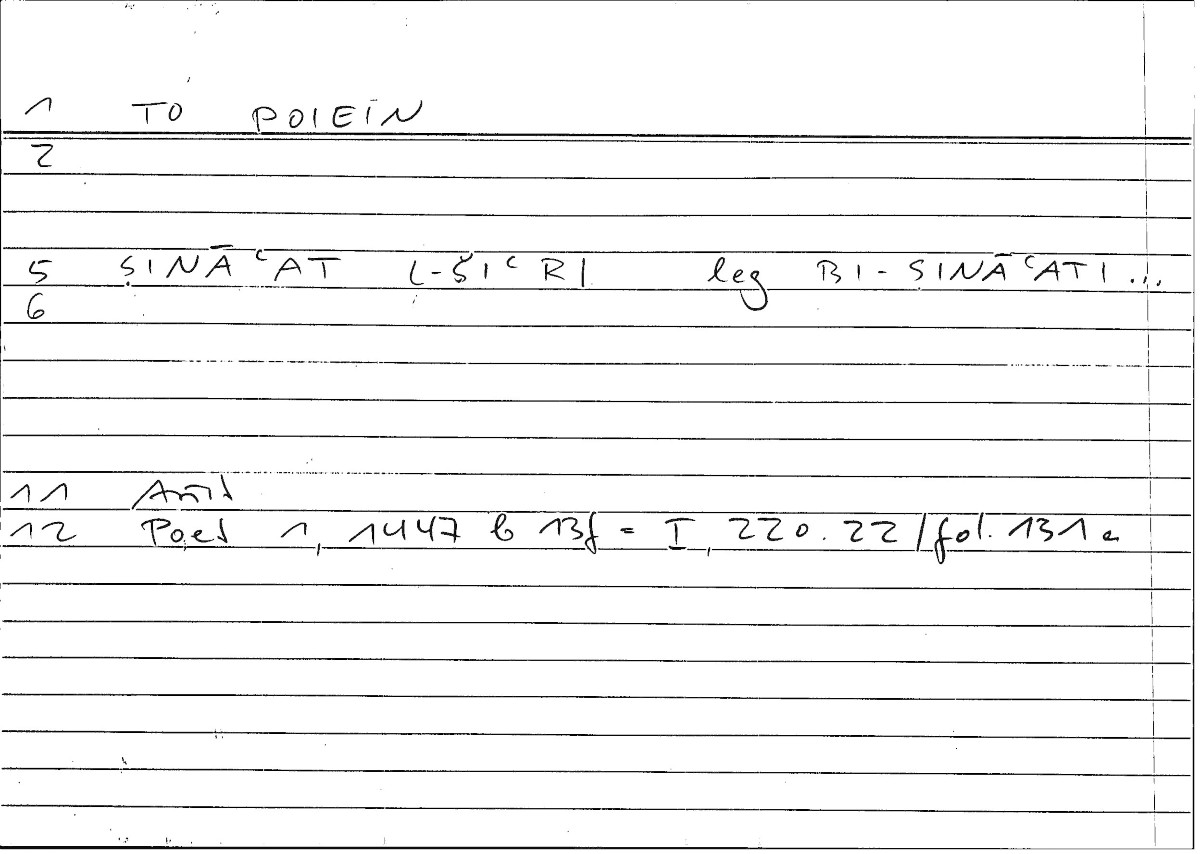 1 TO POIEĪN
2
5 ṢINĀʿAT L-ŠIʿRI leg BI-SINĀʿATI...
6
11 Arist
12 Poet 1, 1447 b 13f = I, 220.22/fol. 131a